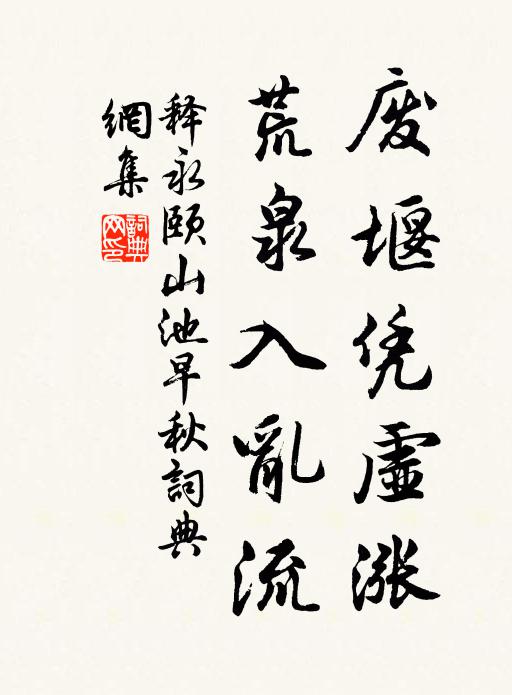 废堰凭虚涨
荒泉入亂流
释永颐山池早秋詞典
網集
詞典
网印